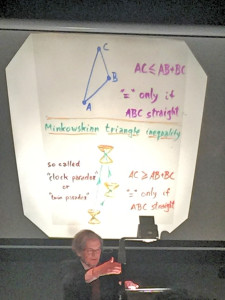 C
B
A
AC ≤ AB+BC
"=" only if
ABC straight
Minkowskian triangle inequality
so called
"clock paradox"
or
"twin paradox"
AC ≥ AB+BC
"=" only if
ABC straight